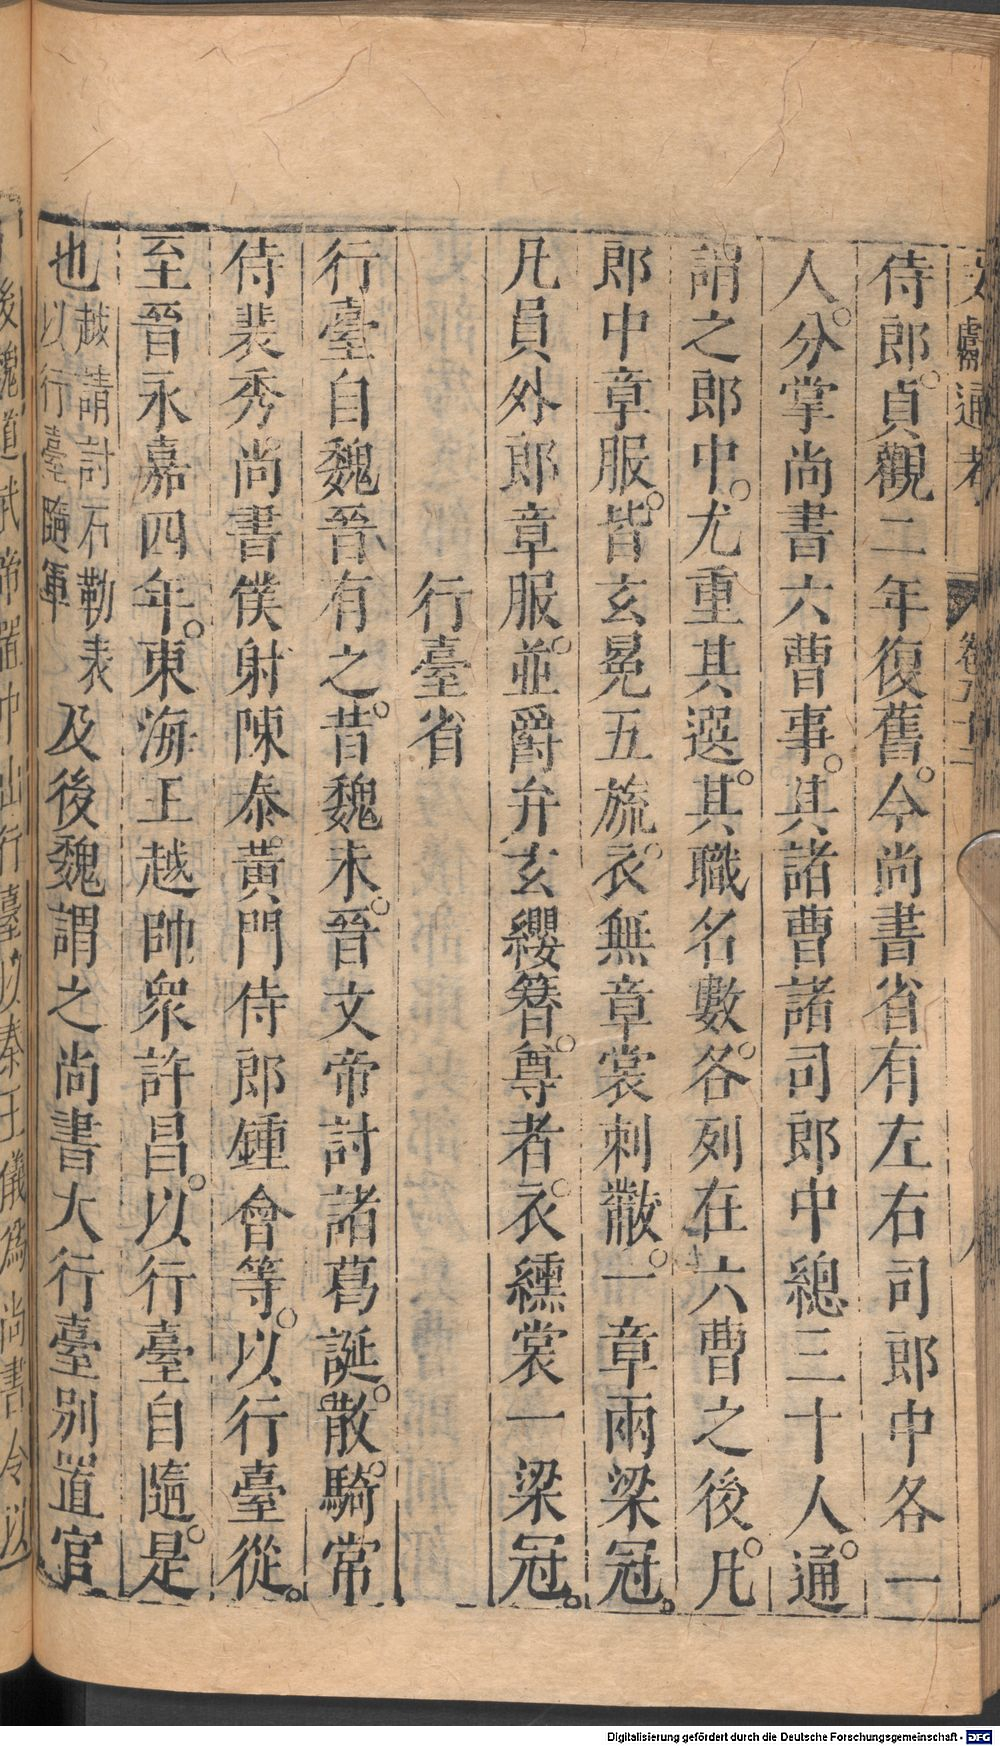 文獻通考 卷五十二
侍郎。貞觀二年復舊。今尚書省有左右司郎中各一
人。分掌尚書六曹事。其諸曹諸司郎中總三十人。通
謂之郎中。尤重其選。其職名數。各列在六曹之後。凡
郎中章服。皆玄冕五旒。衣無章裳刺黻。一章兩梁冠。
凡員外郎章服。並爵弁玄纓簪。尊者衣。纁裳一梁冠。
行臺省
行臺自魏晉有之。昔魏末。晉文帝討諸葛誕。散騎常
侍裴秀尚書僕射陳泰。黃門侍郎鍾會等。以行臺從。
至晉永嘉四年。東海王越帥衆許昌。以行臺自隨。是
也越請討石勒表以行臺隨軍及後魏謂之尚書大行臺別置官
後魏道武帝置中山行臺以秦王儀爲尚書令以
Digitalisierung gefördert durch die Deutsche Forschungsgemeinschaft - DFG